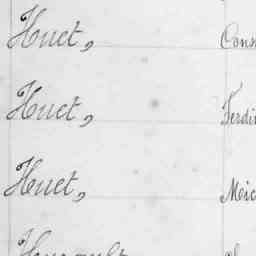 Huet, Cons
Huet, Ferdi
Huet, Meic